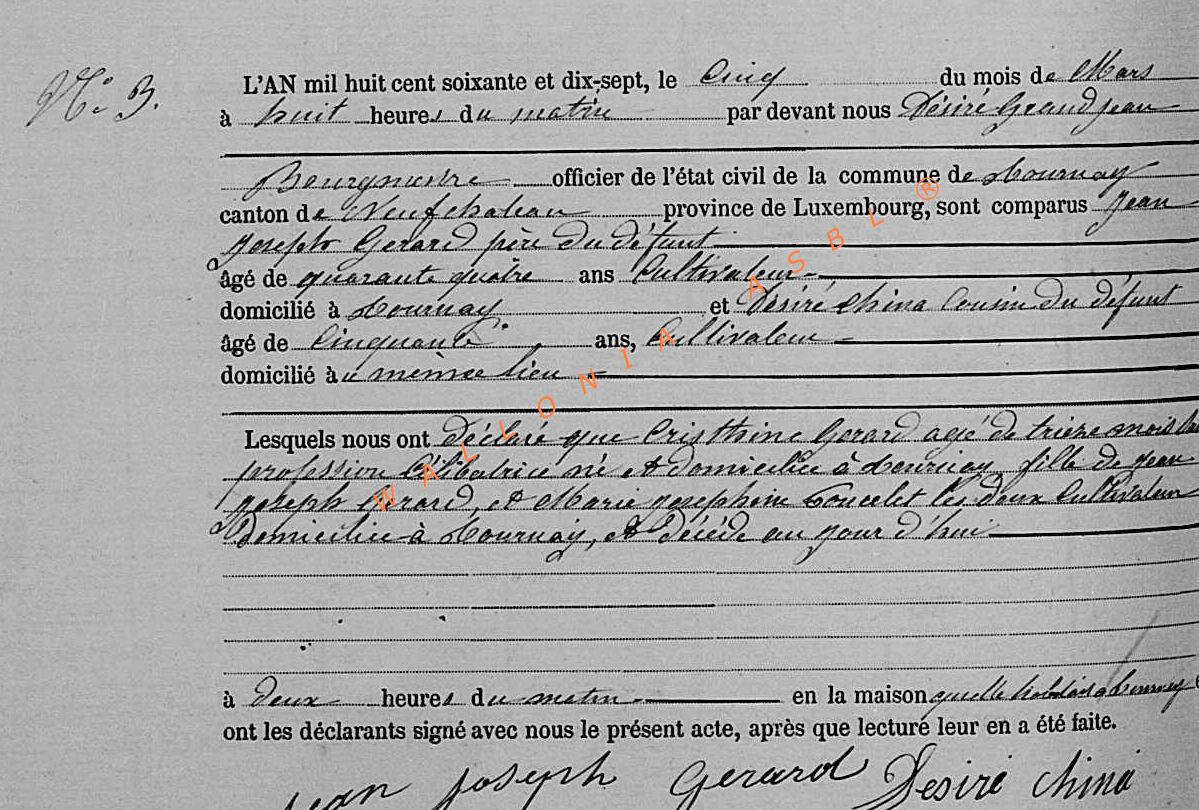 N° 3.
L'AN mil huit cent soixante et dix-sept, le Cinq du mois de Mars
à huit heures du matin par devant nous Désiré Grandjean
Bourgmestre officier de l'état civil de la commune de Tournay
canton de Neufchateau province de Luxembourg, sont comparus Jean
Joseph Gerard père du défunt
âgé de quarante quatre ans Cultivateur
domicilié à Tournay et Désiré China Cousin du défunt
âgé de Cinquante ans, Cultivateur
domicilié au même lieu
Lesquels nous ont déclaré que Cristhine Gerard agé de trieze mois
profession Célibatrice né et domiciliée à Tournay fille de Jean
Joseph Gerard, et Marie Josephine Poncelet les deux Cultivateur
domiciliée à Tournay, et décédé au jour d'hui
à deux heures du matin en la maison quelle habitais a Tournay
ont les déclarants signé avec nous le présent acte, après que lecture leur en a été faite.
Jean Joseph Gerard Désiré China
WALLONIA ASBL ®